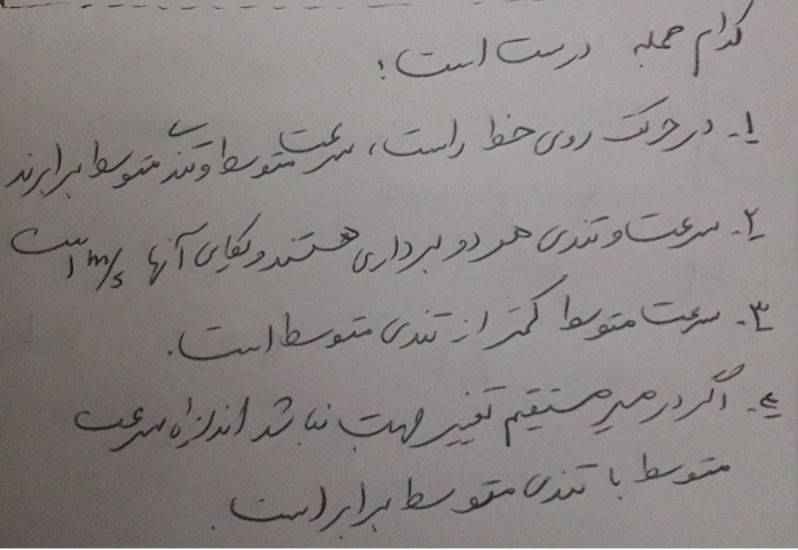 کدام جمله درست است؟
۱- در حرکت روی خط راست، سرعت متوسط و تندی متوسط برابرند
۲- سرعت و تندی هر دو برداری هستند و یکای آنها ۱ m/s است
۳- سرعت متوسط کمتر از تندی متوسط است.
۴- اگر در مسیر مستقیم تغییر جهت نباشد اندازهٔ سرعت
متوسط با تندی متوسط برابر است.